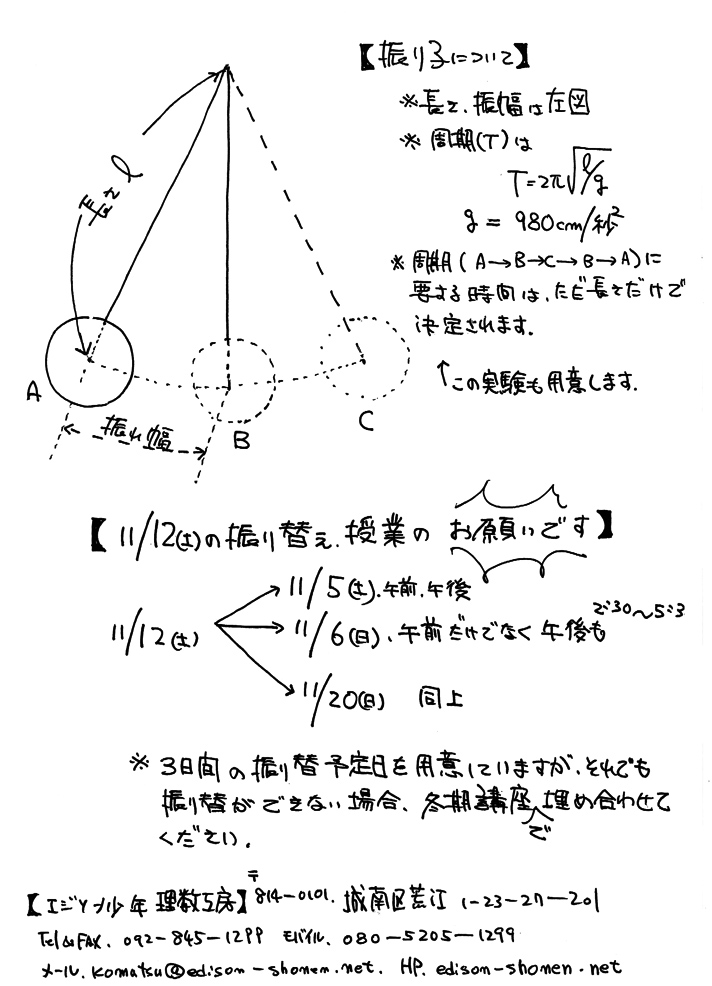 【振り子について】
※長さ、振幅は左図
※ 周期(T)は
T=2π√l/g
g = 980cm/秒²
※周期(A→B→C→B→A)に
要する時間は、ただ長さだけで
決定されます。
↑この実験も用意します.
長さ l
A
B
C
振れ幅
【11/12(土)の振り替え.授業の お願いです】
11/12(土)
11/5(土).午前.午後
11/6(日)、午前だけでなく午後も
2:30〜5:3
11/20(日) 同上
※ 3日間の振り替予定日を用意していますが、それでも
振り替ができない場合、冬期講座で埋め合わせて
ください.
【エジソン少年 理数工房】〒814-0101. 城南区荒江 1-23-27-201
Tel&FAX. 092-845-1299 モバイル. 080-5205-1299
メール. komatsu@edison-shonen.net. HP. edison-shonen.net